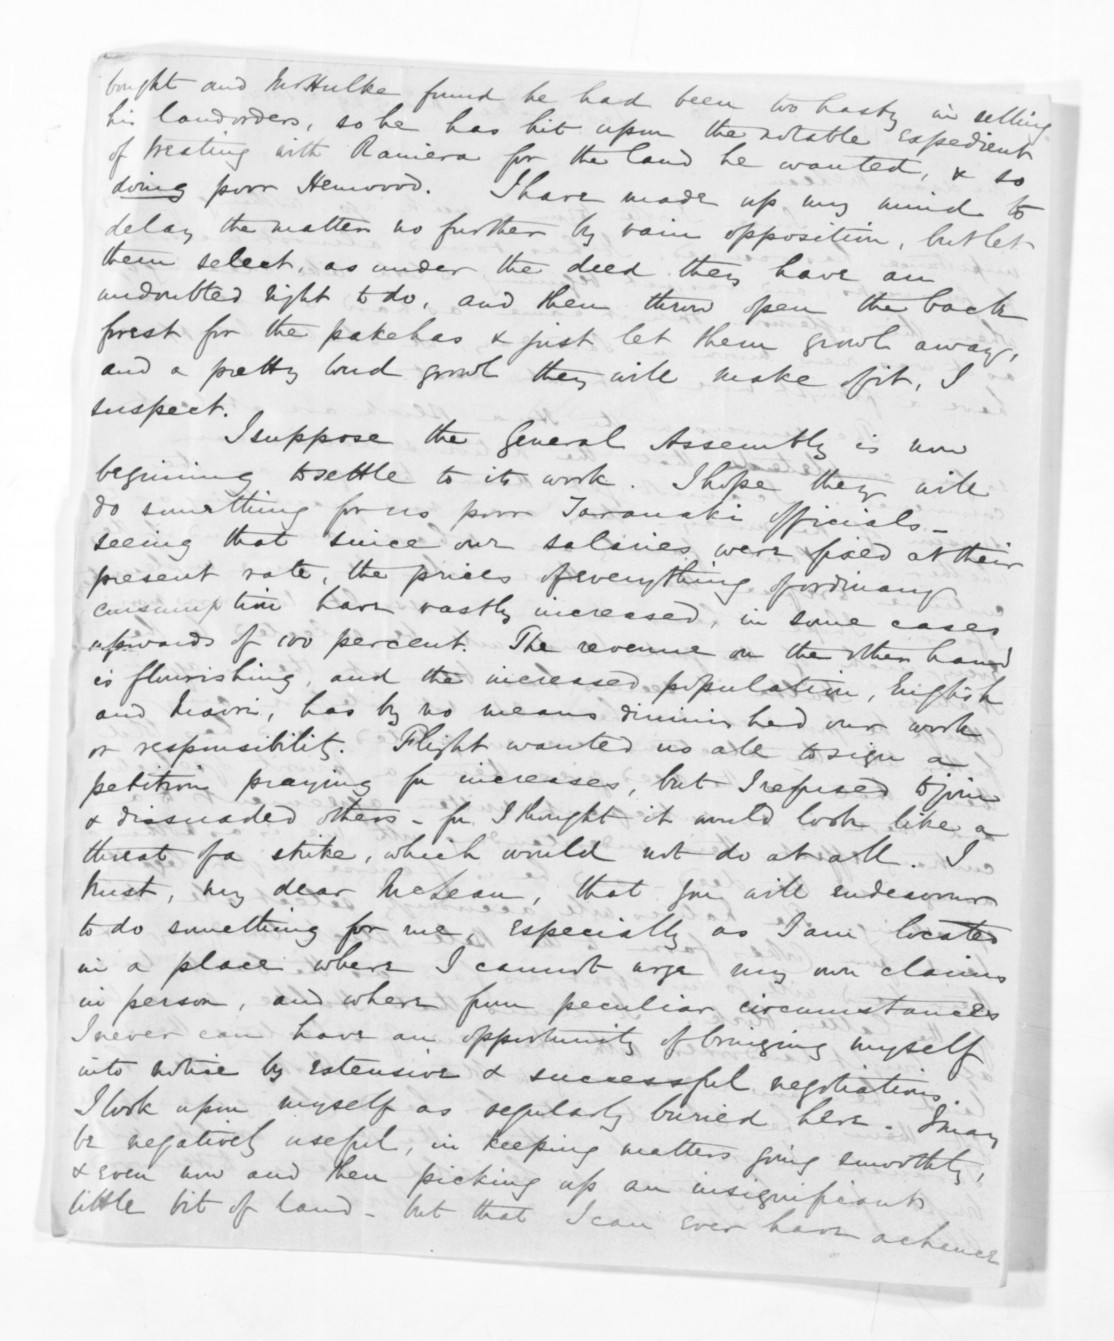 bought and Mr Hulke found he had been too hasty in selling
his landorders, so he has hit upon the notable expedient
of treating with Raniera for the land he wanted, & so
doing poor Henwood. I have made up my mind to
delay the matter no further by vain opposition, but let
them select, as under the deed they have an
undoubted right to do, and then throw open the back
forest for the pakehas & just let them growl away,
and a pretty loud growl they will make of it, I
suspect.
I suppose the General Assembly is now
begining to settle to its work. I hope they will
do something for us poor Taranaki officials -
seeing that since our salaries were fixed at their
present rate, the prices of everything of ordinary
consumption have vastly increased, in some cases
upwards of 100 percent. The revenue on the other hand
is flourishing, and the increased population, English
and Maori, has by no means diminished our work
or responsibility. Flight wanted us all to sign a
petition praying for increases, but I refused to join
& dissuaded others - for I thought it would look like a
threat of a strike, which would not do at all. I
trust, my dear McLean, that you will endeavour
to do something for me, especially as I am located
in a place where I cannot urge my own claims
in person, and where from peculiar circumstances
I never can have an opportunity of bringing myself
into notice by extensive & successful negotiations.
I look upon myself as regularly buried here. I may
be negatively useful, in keeping matters going smoothly,
& even now and then picking up an insignificant
little bit of land - but that I can ever have a chance